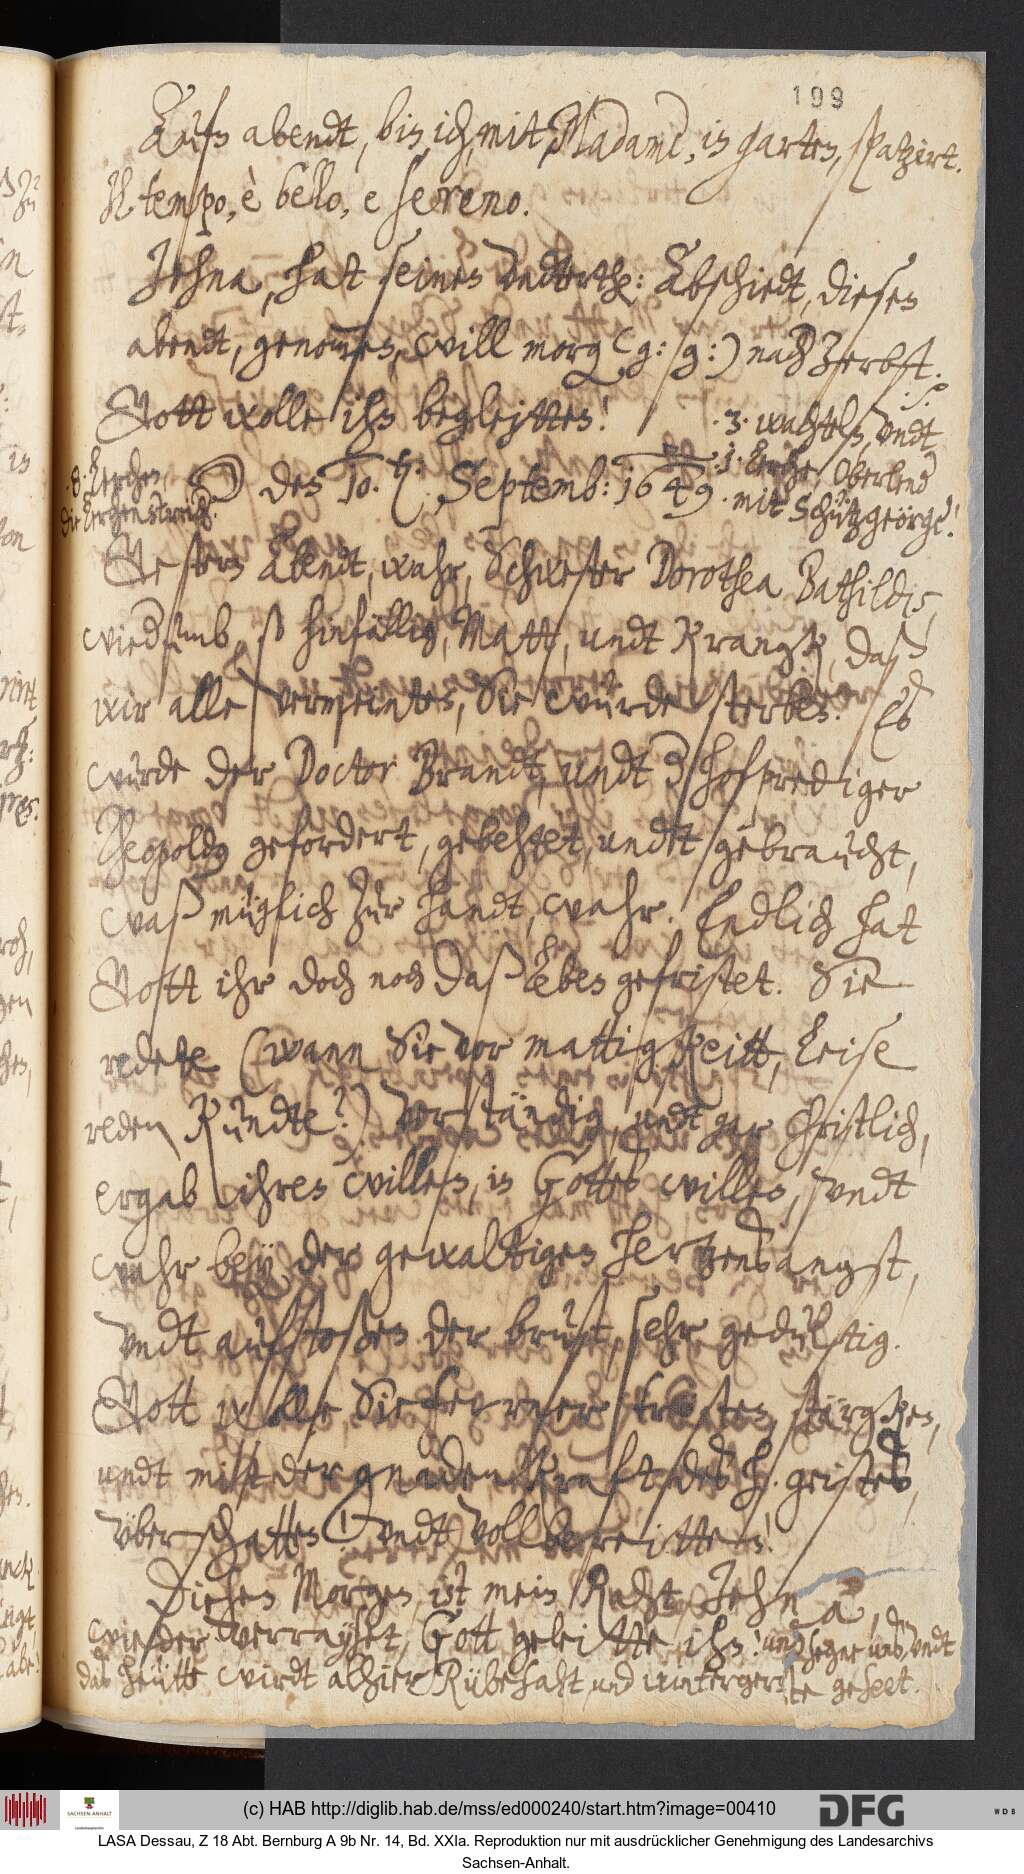 199
Aufn abendt, bin ich, mit Madame, in garten, spatzirt.
Il tempo, è bello, e sereno.
Jehna, hat seinen vndterth: Abschiedt, diesen
abendt, genommen, will morg(en) (g: g:) nach Zerbst.
Gott wolle ihn begleitten!
3 wachteln, vndt
1 Lerche, Oberlender
mit Schützgeörge!
8 Lerchen
die Lerchenstreicher.
den 10. Septemb: 1649.
Gestern abendt, wahr, Schwester Dorothea Bathildis,
wiederumb, so hinfällig, Matt, undt Krangk, daß
wir alle vermeinten, Sie würde sterben. Es
wurde der Doctor Brandt, undt hofprediger
Theopoldus gefordert, gebehtet, undt gebraucht,
waß müglich zur handt, wahr. Endlich hat
Gott ihr doch noch daß leben gefristet. Sie
redete (wann Sie vor mattigkeitt, Leise
reden Kundte?) vorständig, undt gar Christlich,
ergab ihren willen, in Gottes willen, vndt
wahr bey der gewaltigen hertzensangst,
vndt aufstoßen der brust, sehr gedultig.
Gott wolle Sie ferner trösten, stärgken,
undt mitt der gnaden Kraft des h. geistes,
überschatten! vndt vollbereitten!
Diesen Morgen, ist mein Raht Jehna,
wieder verrayset, Gott geleitte ihn! und segne uns, vndt den
das heütte wirdt alhier Rübesaht und wintergerste geseet.
(c) HAB http://diglib.hab.de/mss/ed000240/start.htm?image=00410
SACHSEN-ANHALT
DFG
WDB
LASA Dessau, Z 18 Abt. Bernburg A 9b Nr. 14, Bd. XXIa. Reproduktion nur mit ausdrücklicher Genehmigung des Landesarchivs
Sachsen-Anhalt.